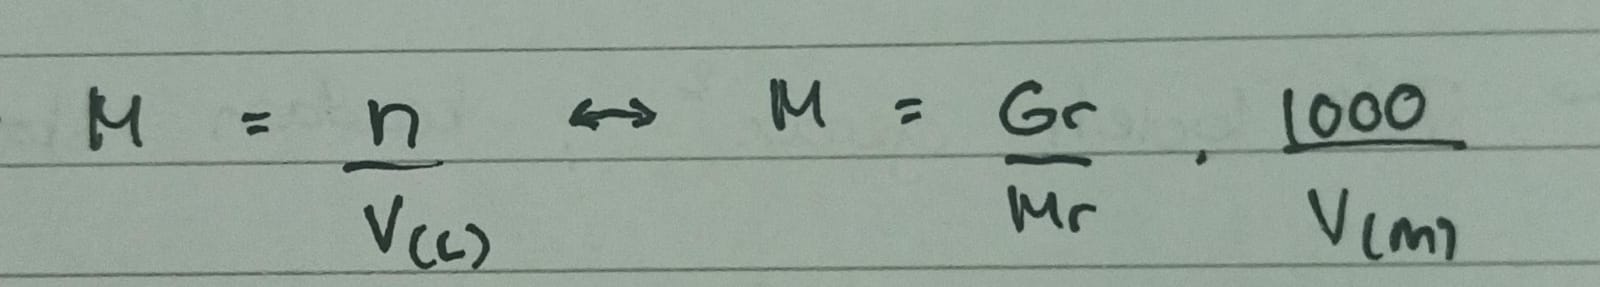 M = n / V(L) ↔ M = Gr / Mr . 1000 / V(m)